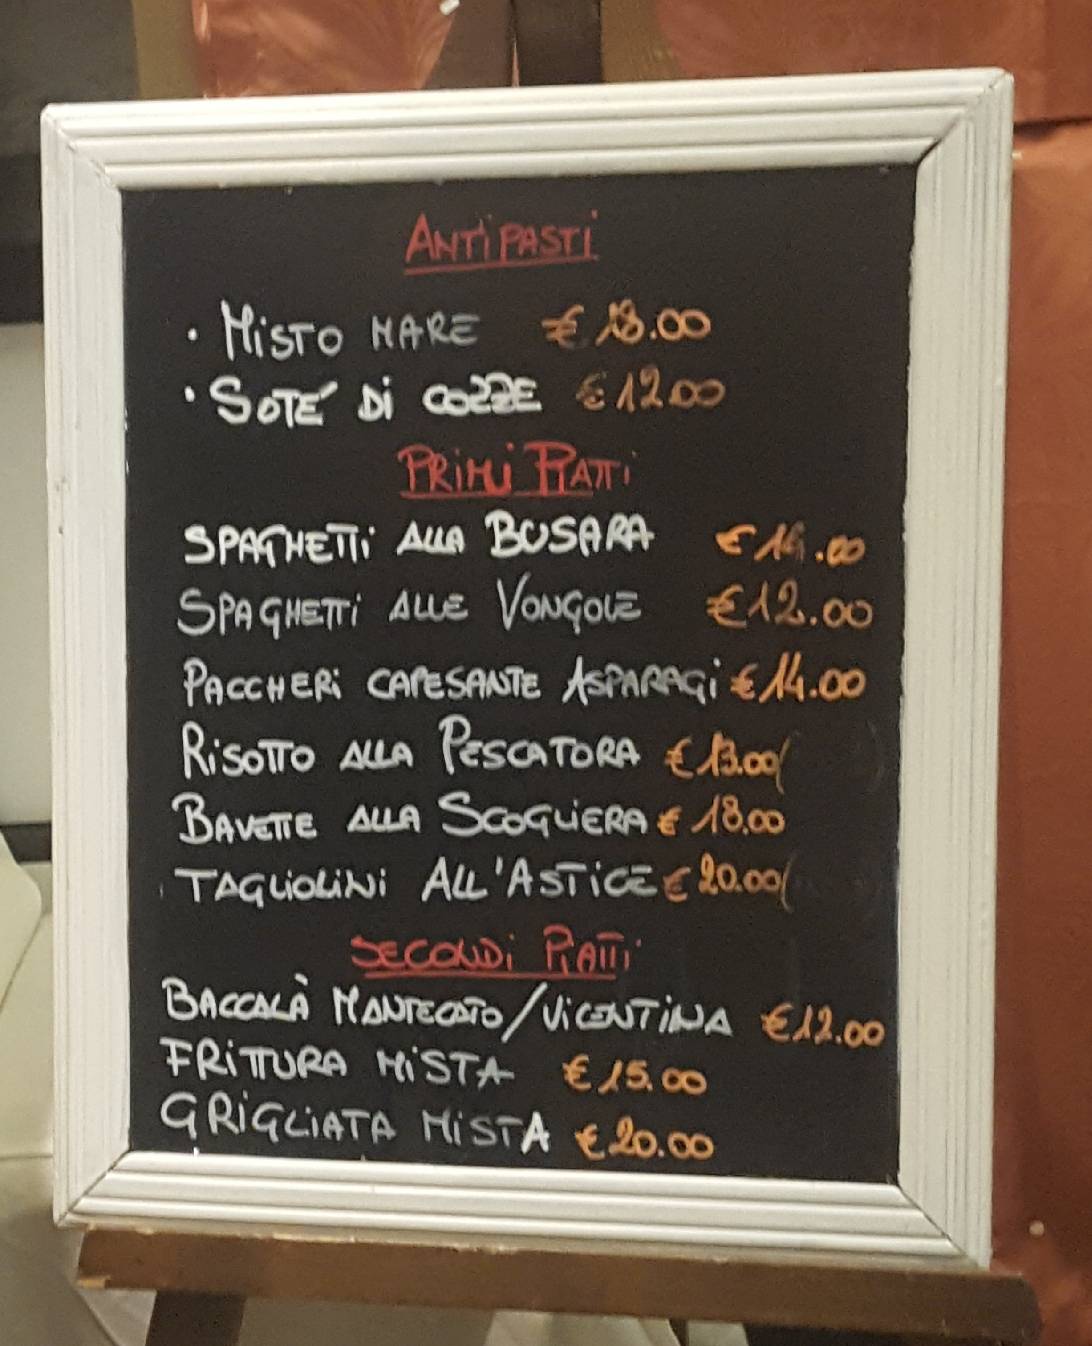 ANTIPASTI
· MISTO MARE € 18.00
· SOTÉ DI COZZE € 12.00
PRIMI PIATTI
SPAGHETTI ALLA BUSARA € 14.00
SPAGHETTI ALLE VONGOLE € 12.00
PACCHERI CAPESANTE ASPARAGI € 14.00
RISOTTO ALLA PESCATORA € 13.00
BAVETTE ALLA SCOGLIERA € 18.00
TAGLIOLINI ALL'ASTICE € 20.00
SECONDI PIATTI
BACCALÀ MANTECATO/VICENTINA € 12.00
FRITTURA MISTA € 15.00
GRIGLIATA MISTA € 20.00